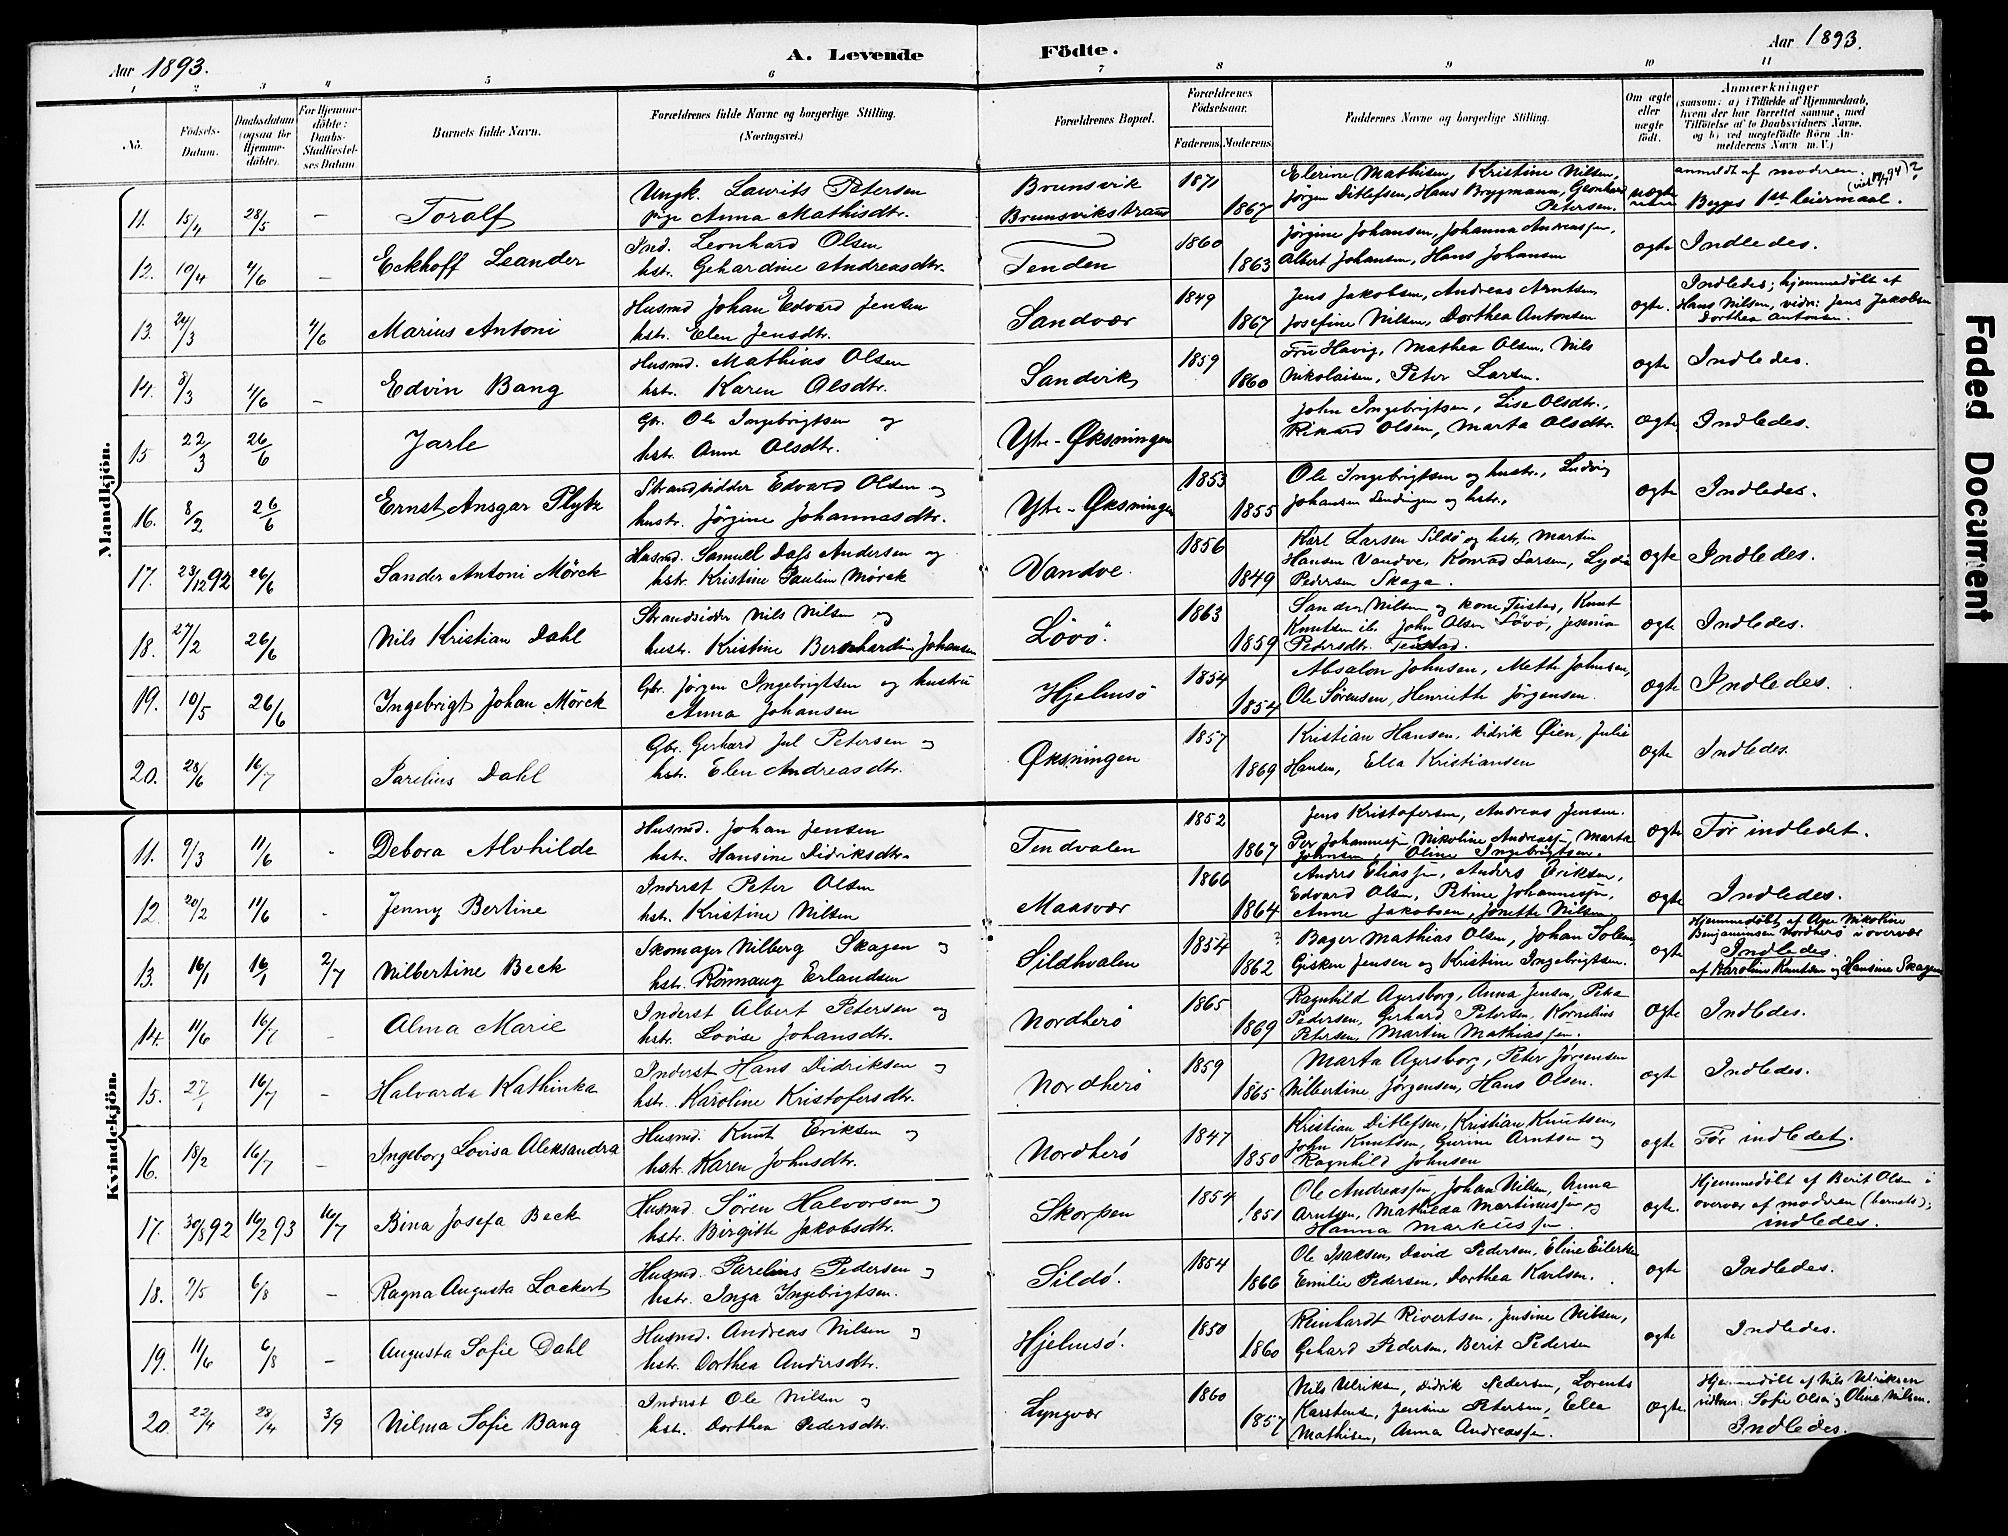 Aar 1893.
A. Levende Födte.
Aar 1893.
1 2 3 4 5 6 7 8 9 10 11
No.
Födsels-Datum.
Daabsdatum (ogsaa for Hjemme-döbte).
For Hjemme-döbte: Daabs-Stadfæstel-ses Datum
Barnets fulde Navn.
Forældrenes fulde Navne og borgerlige Stilling. (Næringsvei.)
Forældrenes Bopæl.
Forældrenes Födselsaar.
Faderens. Moderens.
Faddernes Navne og borgerlige Stilling.
Om ægte eller uægte født.
Anmærkninger
(saasom: a) i Tilfælde af Hjemmedaab,
hvem der har forrettet samme, med
Tilföielse af to Daabsvidners Navne,
og b) ved uægtefödte Börn An-
melderens Navn m. V.)
Mandkjön.
11. 15/4 28/5 – Toralf
Ungk. Laurits Petersen
pige Anna Mathisdtr.
Brunsvik
Brunsvikstrand
1871 1867
Elerine Mathisen, Kristine Nilsen,
Jørgen Ditlefsen, Hans Brygmann,
Petersen.
uægte
anmeldt af moderen.
Begges 1ste leiermaal.
12. 10/4 4/6 – Eckhoff Leander
Ind. Leonhard Olsen
hstr. Gehardine Andreasdtr.
Tenden
1860 1863
Jørgine Johansen, Johanna Andreassen,
Albert Johansen, Hans Johansen
ægte Indledes.
13. 24/3 4/6 Marius Antoni
Husmd Johan Edvard Jensen
hstr. Elen Jensdtr.
Sandvær
1849 1867
Jens Jakobsen, Andreas Arntsen
Josefine Nilsen, Dorthea Antonsen
ægte.
Indledes; hjemmedøbt af
Hans Nilsen, vidn: Jens Jakobsen
Dorthea Antonsen.
14. 8/3 4/6 – Edvin Bang
Husmd. Mathias Olsen
hstr. Karen Olsdtr.
Sandvik
1859 1860
Fru Havig, Mathea Olsen, Nils
Nikolaisen, Peter Larsen.
ægte Indledes.
15 22/3 26/6 Jarle
Gbr. Ole Ingebrigtsen og
hstr. Anne Olsdtr.
Ytre-Øksningen
John Ingebrigtsen, Lise Olsdtr.,
Rikard Olsen, Marta Olsdtr.
ægte Indledes.
16. 8/2 26/6 Ernst Ansgar Plyh
Strandsidder Edvard Olsen og
hustr. Jörgine Johannesdtr.
Ytre-Øksningen
1853 1855
Ole Ingebrigtsen og hustr., Ludvig
Johansen og hstr.,
ægte Indledes.
17. 23/12 92 26/6 Sander Antoni Mörck
Husmd. Samuel Dass Andersen og
hstr. Kristine Paulin Mörck
Vandve.
1856 1849
Karl Larsen Sildø og hstr. Martin
Hansen Vandve, Konrad Larsen, Lydia
Pedersen Skaga.
ægte Indledes.
18. 27/2 26/6 Nils Kristian Dahl
Strandsidder Nils Nilsen og
hustr. Kristine Bernhardin Johansen
Lövö.
1863 1859
Sander Nilsen og kone Teistad, Knut
Knutsen ib. John Olsen Løvø, Jesenia
Pedersdtr. Teistad.
ægte Indledes.
19. 10/5 26/6 Ingebrigt Johan Mörck
Gbr. Jörgen Ingebrigtsen og hustru
Anna Johansen
Hjelmsö
1854 1854
Absalon Johnsen, Mette Johnsen,
Ole Sørensen, Henriette Jørgensen.
ægte Indledes.
20. 28/6 16/7 Parelius Dahl
Gbr. Gerhard Jul Petersen og
hstr. Elen Andreasdtr.
Øksningen
1857 1869
Kristian Hansen, Didrik Øien, Julie
Hansen, Ella Kristiansen
ægte Indledes.
Kvindekjön.
11. 9/3 11/6 - Debora Alvhilde
Husmd. Johan Jensen
hstr. Hansine Didriksdtr.
Tendvalen
1852 1867
Jens Kristofersen, Andreas Jensen.
Per Johannessen, Nikoline Andreassen, Marta
Johnsen, Oline Ingebrigtsen.
ægte Før indledet.
12. 20/2 11/6 - Jenny Bertine
Inderst Peter Olsen
hstr. Kristine Nilsen
Maasvær
1866 1864
Anders Eliassen, Anders Eriksen,
Edvard Olsen, Petrine Johannessen
Anne Jakobsen, Jonette Nilsen
ægte Indledes.
13. 16/1 16/1 2/7 Nilbertine Beck
Skomager Nilberg Skagen og
hstr. Rönnaug Erlandsen
Sildhvalen
1854 1862
Bager Mathias Olsen, Johan Solem,
Gisken Jensen og Kristine Ingebrigtsen.
ægte
Hjemmedøbt af Nikoline
Benjaminsen Nordherö i overvær
Indledes.
af Karoline Knutsen og Hansine Skagen
14. 11/6 16/7 - Alma Marie
Inderst Albert Petersen og
hstr. Lovise Johansdtr.
Nordherö
1865 1869
Ragnhild Agersborg, Anna Jensen, Petra
Pedersen, Gerhard Petersen, Kornelius
Petersen, Martin Mathiassen.
ægte Indledes.
15. 27/1 16/7 – Halvarda Kathinka
Inderst Hans Didriksen og
hstr. Karoline Kristofersdtr.
Nordherö
1859 1865
Marta Agersborg, Peter Jørgensen
Nilbertine Jørgensen, Hans Olsen.
ægte Indledes.
16. 18/2 16/7 – Ingeborg Lovisa Aleksandra
Husmd. Knut Eriksen og
hstr. Karen Johnsdtr.
Nordherö
1847 1850
Kristian Ditlefsen, Kristian Knutsen,
John Knutsen, Gurine Arntsen og
Ragnhild Johnsen
ægte Før indledet.
17. 30/8 92 16/2 93 16/7 Bina Josefa Beck
Husmd. Sören Halvorsen og
hstr. Birgitte Jakobsdtr.
Skorpen
1854 1851
Ole Andreassen, Johan Nilsen, Anna
Arntsen, Mathilda Martinussen og
Hanna Markussen.
ægte.
Hjemmedøbt af Berit Olsen i
overvær af moderen (barnets);
indledes.
18. 9/5 6/8 – Ragna Augusta Lockert
Husmd. Parelius Pedersen og
hstr. Inga Ingebrigtsen.
Sildö.
1854 1866
Ole Isaksen, David Pedersen, Eline Eilertsen
Emilie Pedersen, Dorthea Karlsen.
ægte Indledes.
19. 11/6 6/8 – Augusta Sofie Dahl
Husmd. Andreas Nilsen og
hstr. Dorthea Andersdtr.
Hjelmsö.
1850 1860
Reinhardt Rivertsen, Jensine Nilsen,
Gehard Pedersen, Berit Pedersen
ægte Indledes.
20. 22/4 28/4 3/9 Nilma Sofie Bang
Inderst Ole Nilsen og
hstr. Dorthea Pedersdtr.
Lyngvær
1860 1857
Nils Ulriksen, Didrik Pedersen, Lorents
Karstensen, Jensine Petersen, Ella
Mathisen, Anna Andreassen.
ægte.
Hjemmedøbt af Nils Ulriksen
vidner: Sofie Olsen og Oline Nilsen.
Indledes.
Faded Document